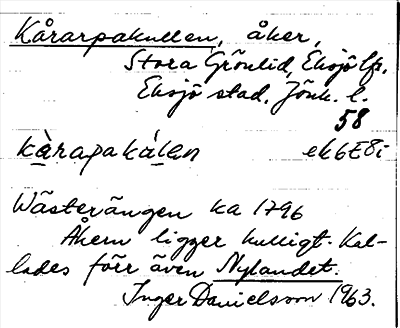 Kårarpakullen, åker,
Stora Grönlid, Eksjö lfs.
Eksjö stad, Jönk. l.
58
kàrapakálen ek6E8i
Wästerängen ka 1796
Åkern ligger kulligt. Kal-
lades förr även Nylandet.
Inger Danielsson 1963.